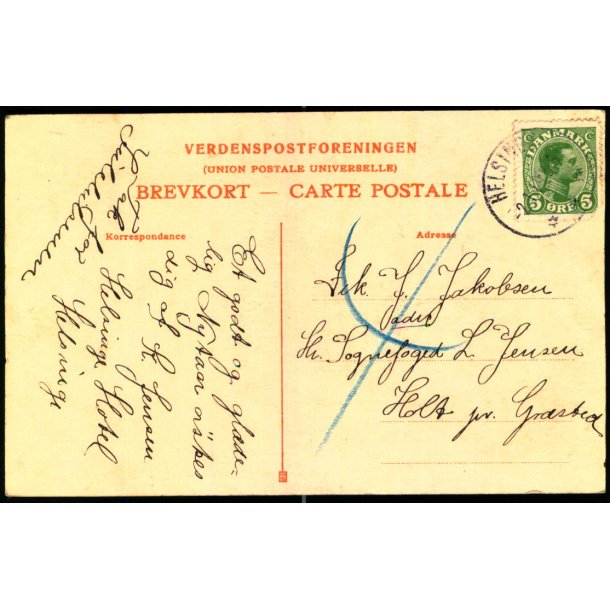 VERDENSPOSTFORENINGEN
(UNION POSTALE UNIVERSELLE)
BREVKORT — CARTE POSTALE
Korrespondance
Adresse
DANMARK
5 ØRE 5
HELSIN
Et godt og glæde-
lig Nytaar øskes
dig J. K. Jensen
Helsinge Hotel
Helsinge
Frk J. Jakobsen
adr
Hr. Sognefoged L. Jensen
Holt pr. Græsted